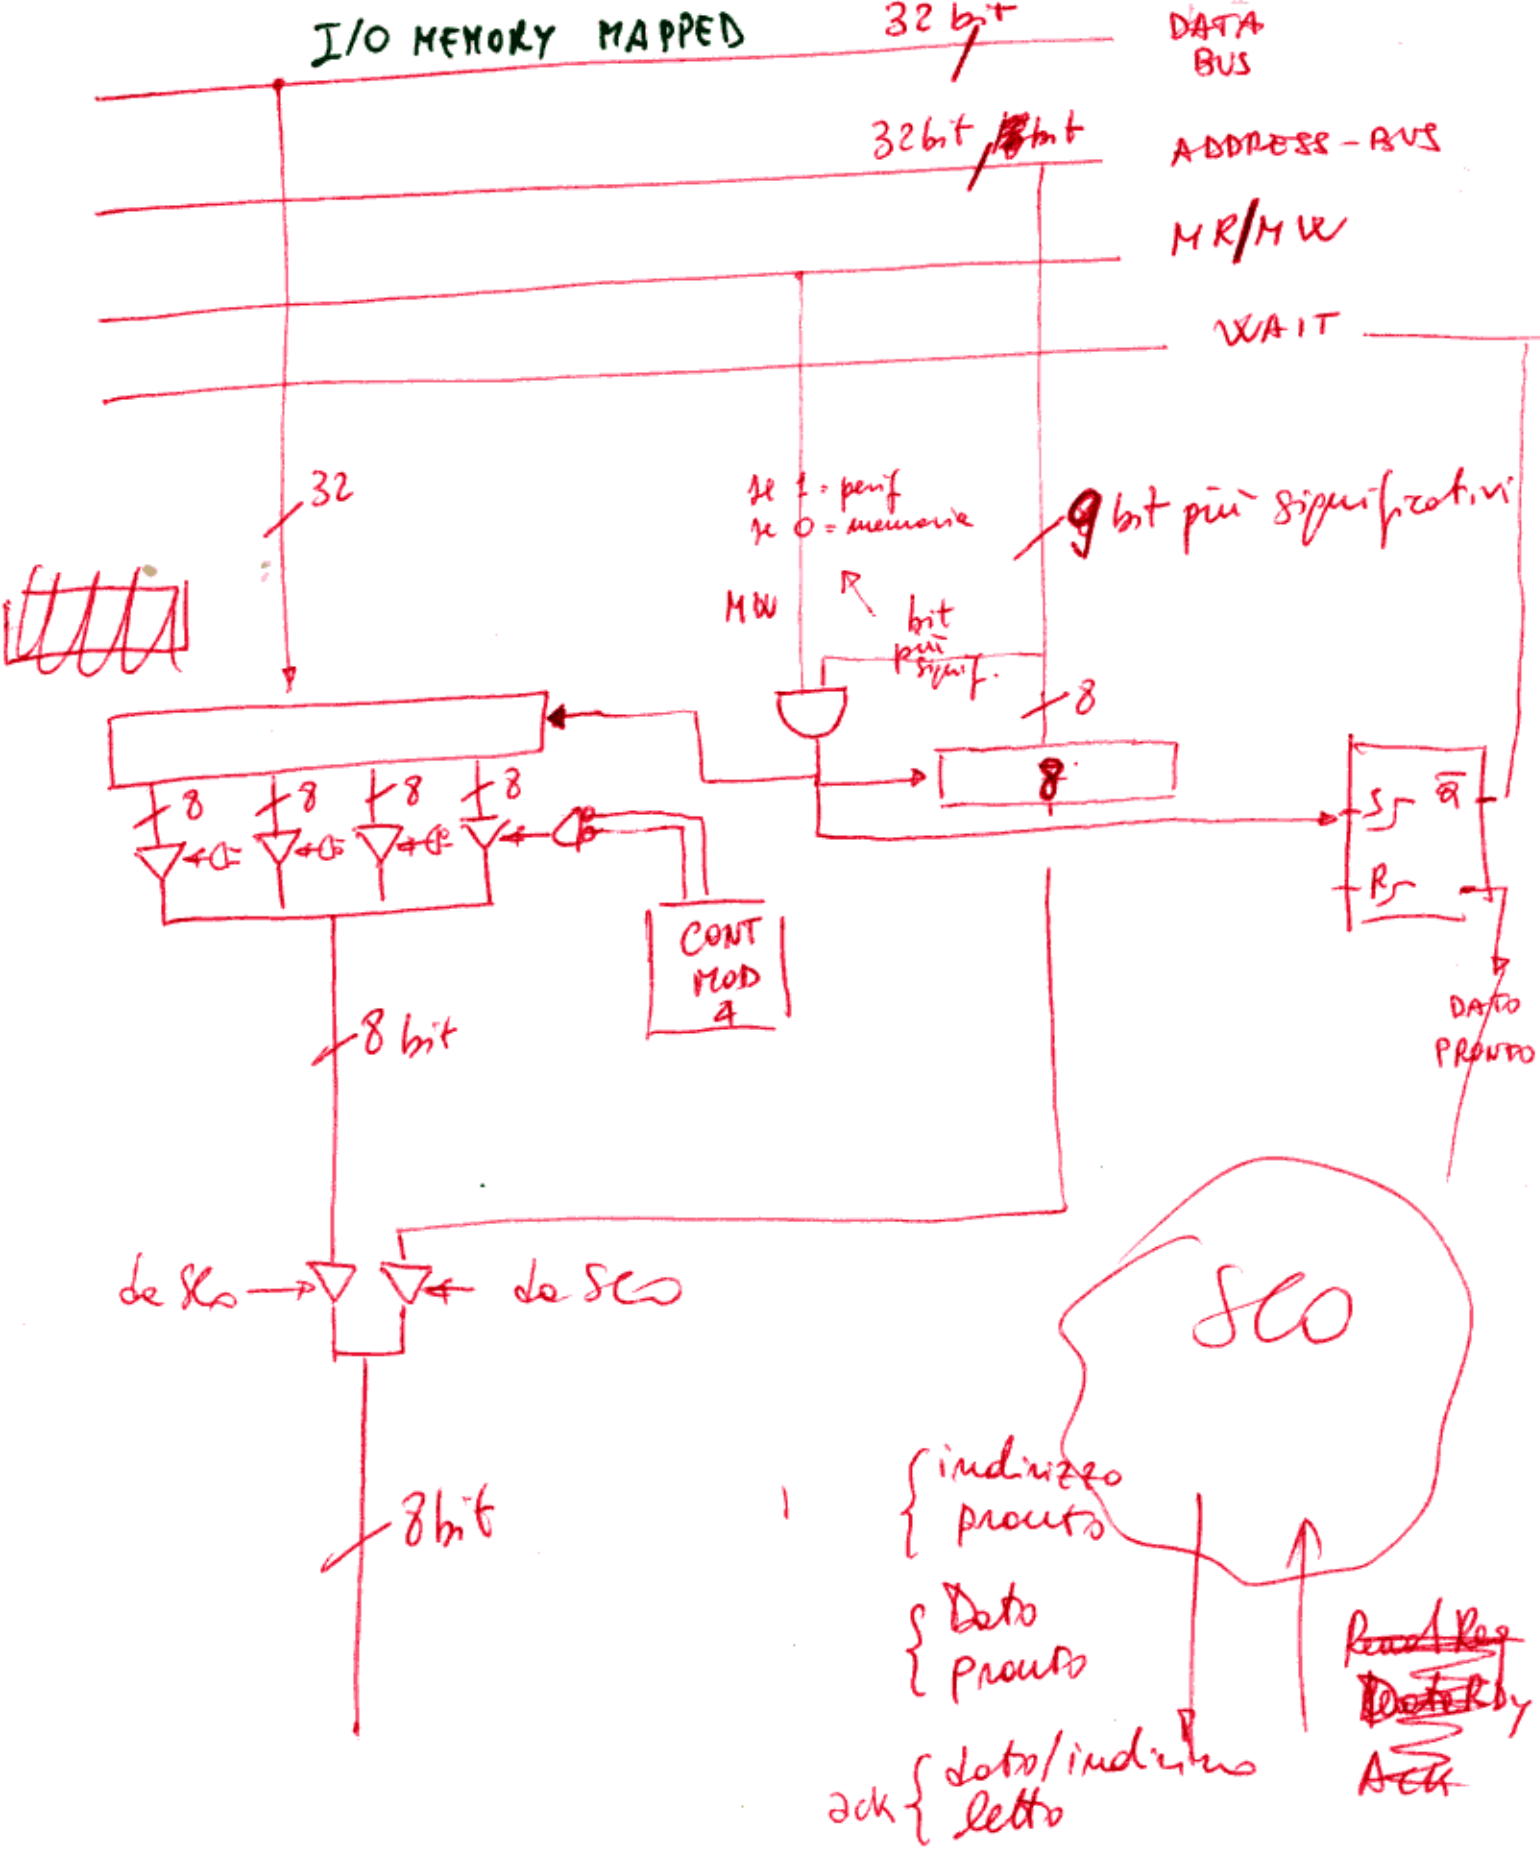 I/O MEMORY MAPPED
32 bit
DATA
BUS
32bit
bit
ADDRESS-BUS
MR/MW
WAIT
32
se 1 = perif
se 0 = memoria
9 bit più significativi
MW
bit
più
signif.
8
8
8 8 8 8
S
Q̅
R
CONT
MOD
4
DATO
PRONTO
8 bit
da SCO
da SCO
SCO
8bit
indirizzo
pronto
Dato
pronto
ack
dato/indirizzo
letto